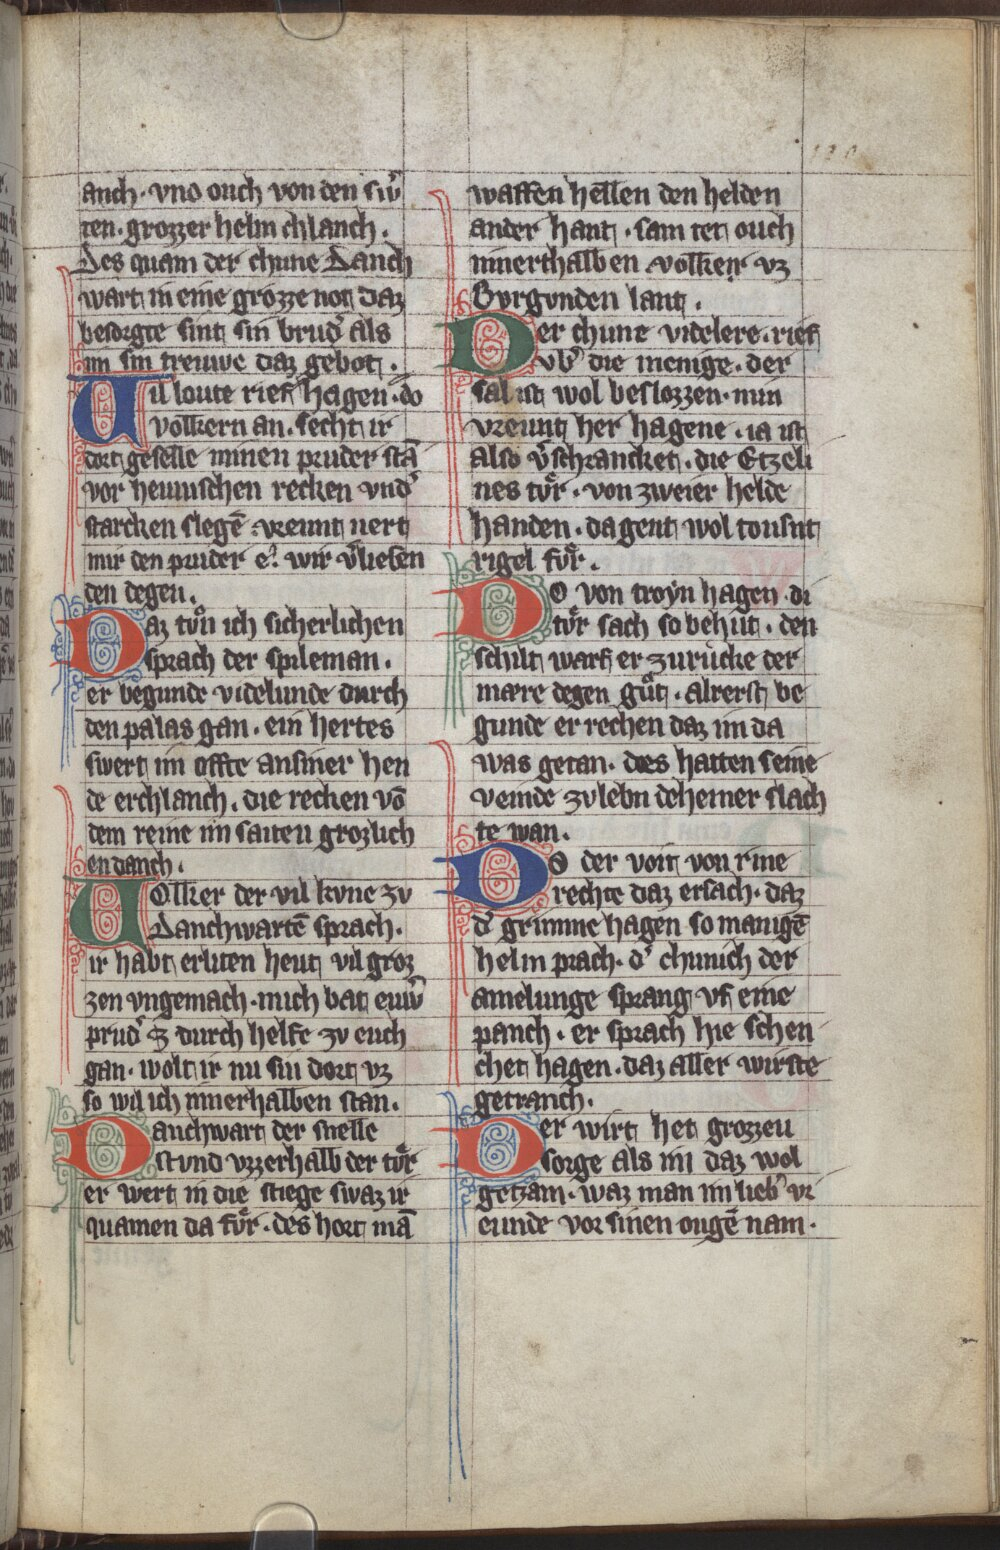 anch. vnd ouch von den sw̾
ten. grozzer helm chlanch.
Des quam der chune Danch
wart in eine grozze not daz
besorgte sint sin brud̾ als
im sin treuwe daz gebot.
Uil loute rief hagen. do
volkern an. secht ir
dort geselle minen pruder stā
vor heunischen recken vnd̾
starcken slegē vreunt nert
mir den pruder e. wir v̾liesen
den degen.
Daz tůn ich sicherlichen
sprach der spileman.
er begunde videlunde durch
den palas gan. ein hertes
swert im offte an siner hen
de erchlanch. die recken vō
dem reine im saiten grozlich
en danch.
Uolker der vil kvne zv
Danchwartē sprach.
ir habt erliten heut vil groz
zen vngemach. mich bat euw̾
prud̾ durch helfe zv euch
gan. wolt ir nu sin dort vz
so wil ich innerhalben stan.
Danchwart der snelle
stvnd vzzerhalb der tůr
er wert in die stiege swaz ir
quamen da fůr. des hort mā
waffen hellen den helden
ander hant. sam tet ouch
innerthalben volker vz
Bvrgvnden lant.
Der chune videlere. rief
vb̾ die menige. der
sal ist wol beslozzen. min
vreunt her hagene. ia ist
also v̾schrancket. die Etzeli
nes tůr. von zweier helde
handen. da gent wol tousnt
rigel fůr.
Do von troyn hagen. di
tůr sach so behut. den
schilt warf er zurucke der
mære degen gůt. alrerst be
gunde er rechen daz im da
was getan. des hatten seine
veinde zv lebn deheiner slach
te wan.
Do der voit von rine
rechte daz ersach. daz
d̾ grimme hagen so manigē
helm prach. d̾ chunich der
amelunge sprang vf eine
panch. er sprach hie schen
chet hagen. daz aller wirste
getranch.
Der wirt het grozzeu
sorge als im daz wol
getzam. waz man im lieb̾ vr
eunde vor sinen ougē nam.